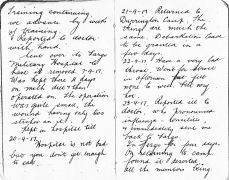 Training continuing
we advance by 1 week
of training.
I Reported to doctor
with hand.
Sent over to Fargo
Military Hospital to
have it removed 7-9-17.
Was kept there 8 days
on milk diet & then
operated on. The operation
was quite small, the
wound having only two
stiches in it. I
kept in hospital till
20-9-17.
Hospital is not bad
but you don't get enough
to eat.
21-9-17 Returned to
Durrington Camp. The
things are much the
same. Leave
to be granted in a
few days.
22-9-17 Had a very bad
throat. Went for
in afternoon but felt
none to well. Felt very
hot.
23-9-17. Reported ill to
doctor, who pronounced
influenza & tonsilitis,
& immediately sent me
back to Fargo.
In Fargo for four days.
On returning to camp
found it deserted,
all the members being